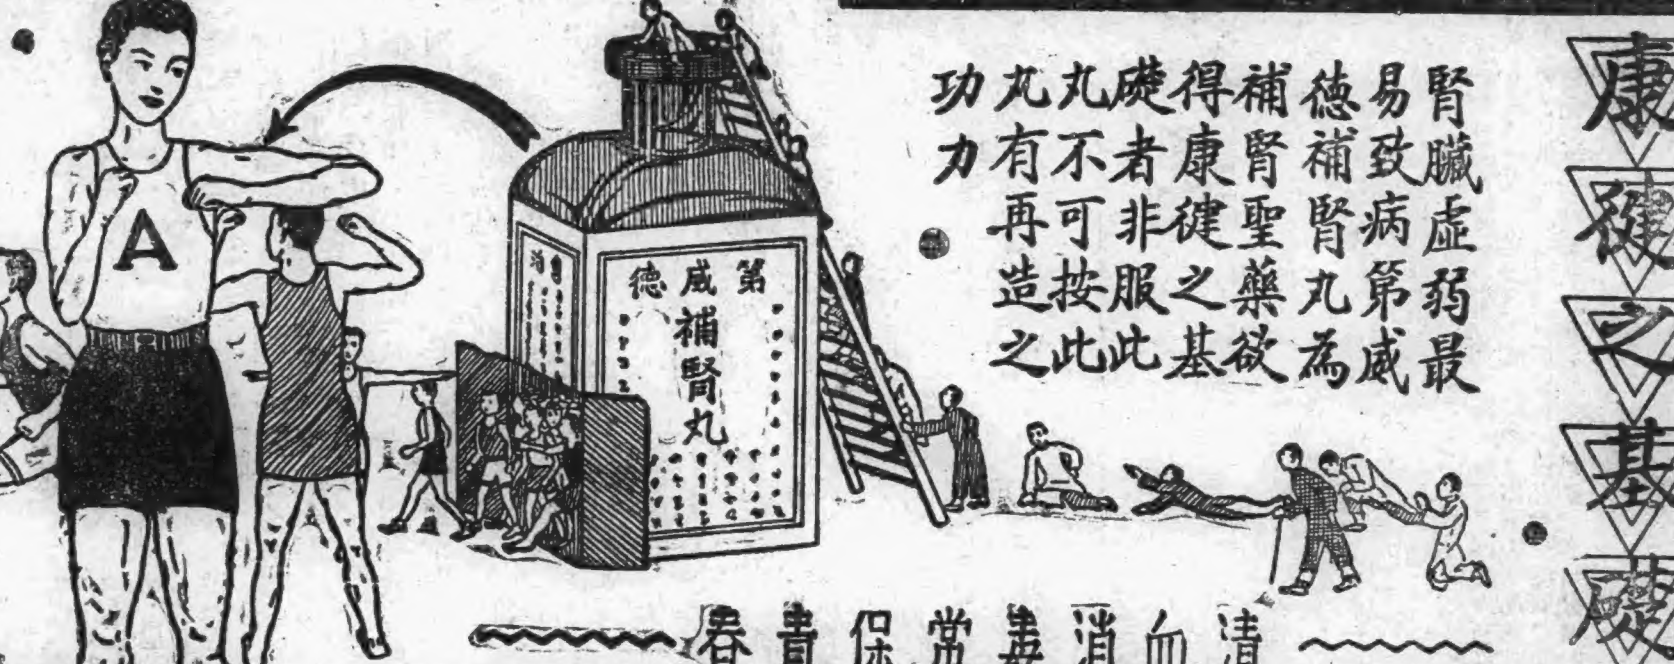 康健之基礎
腎臟虛弱最
易致病第威
德補腎丸為
補腎聖藥欲
得康健之基
礎者非服此
丸不可按此
丸有再造之
功力
第威德
補腎丸
A
清血消毒常保青春